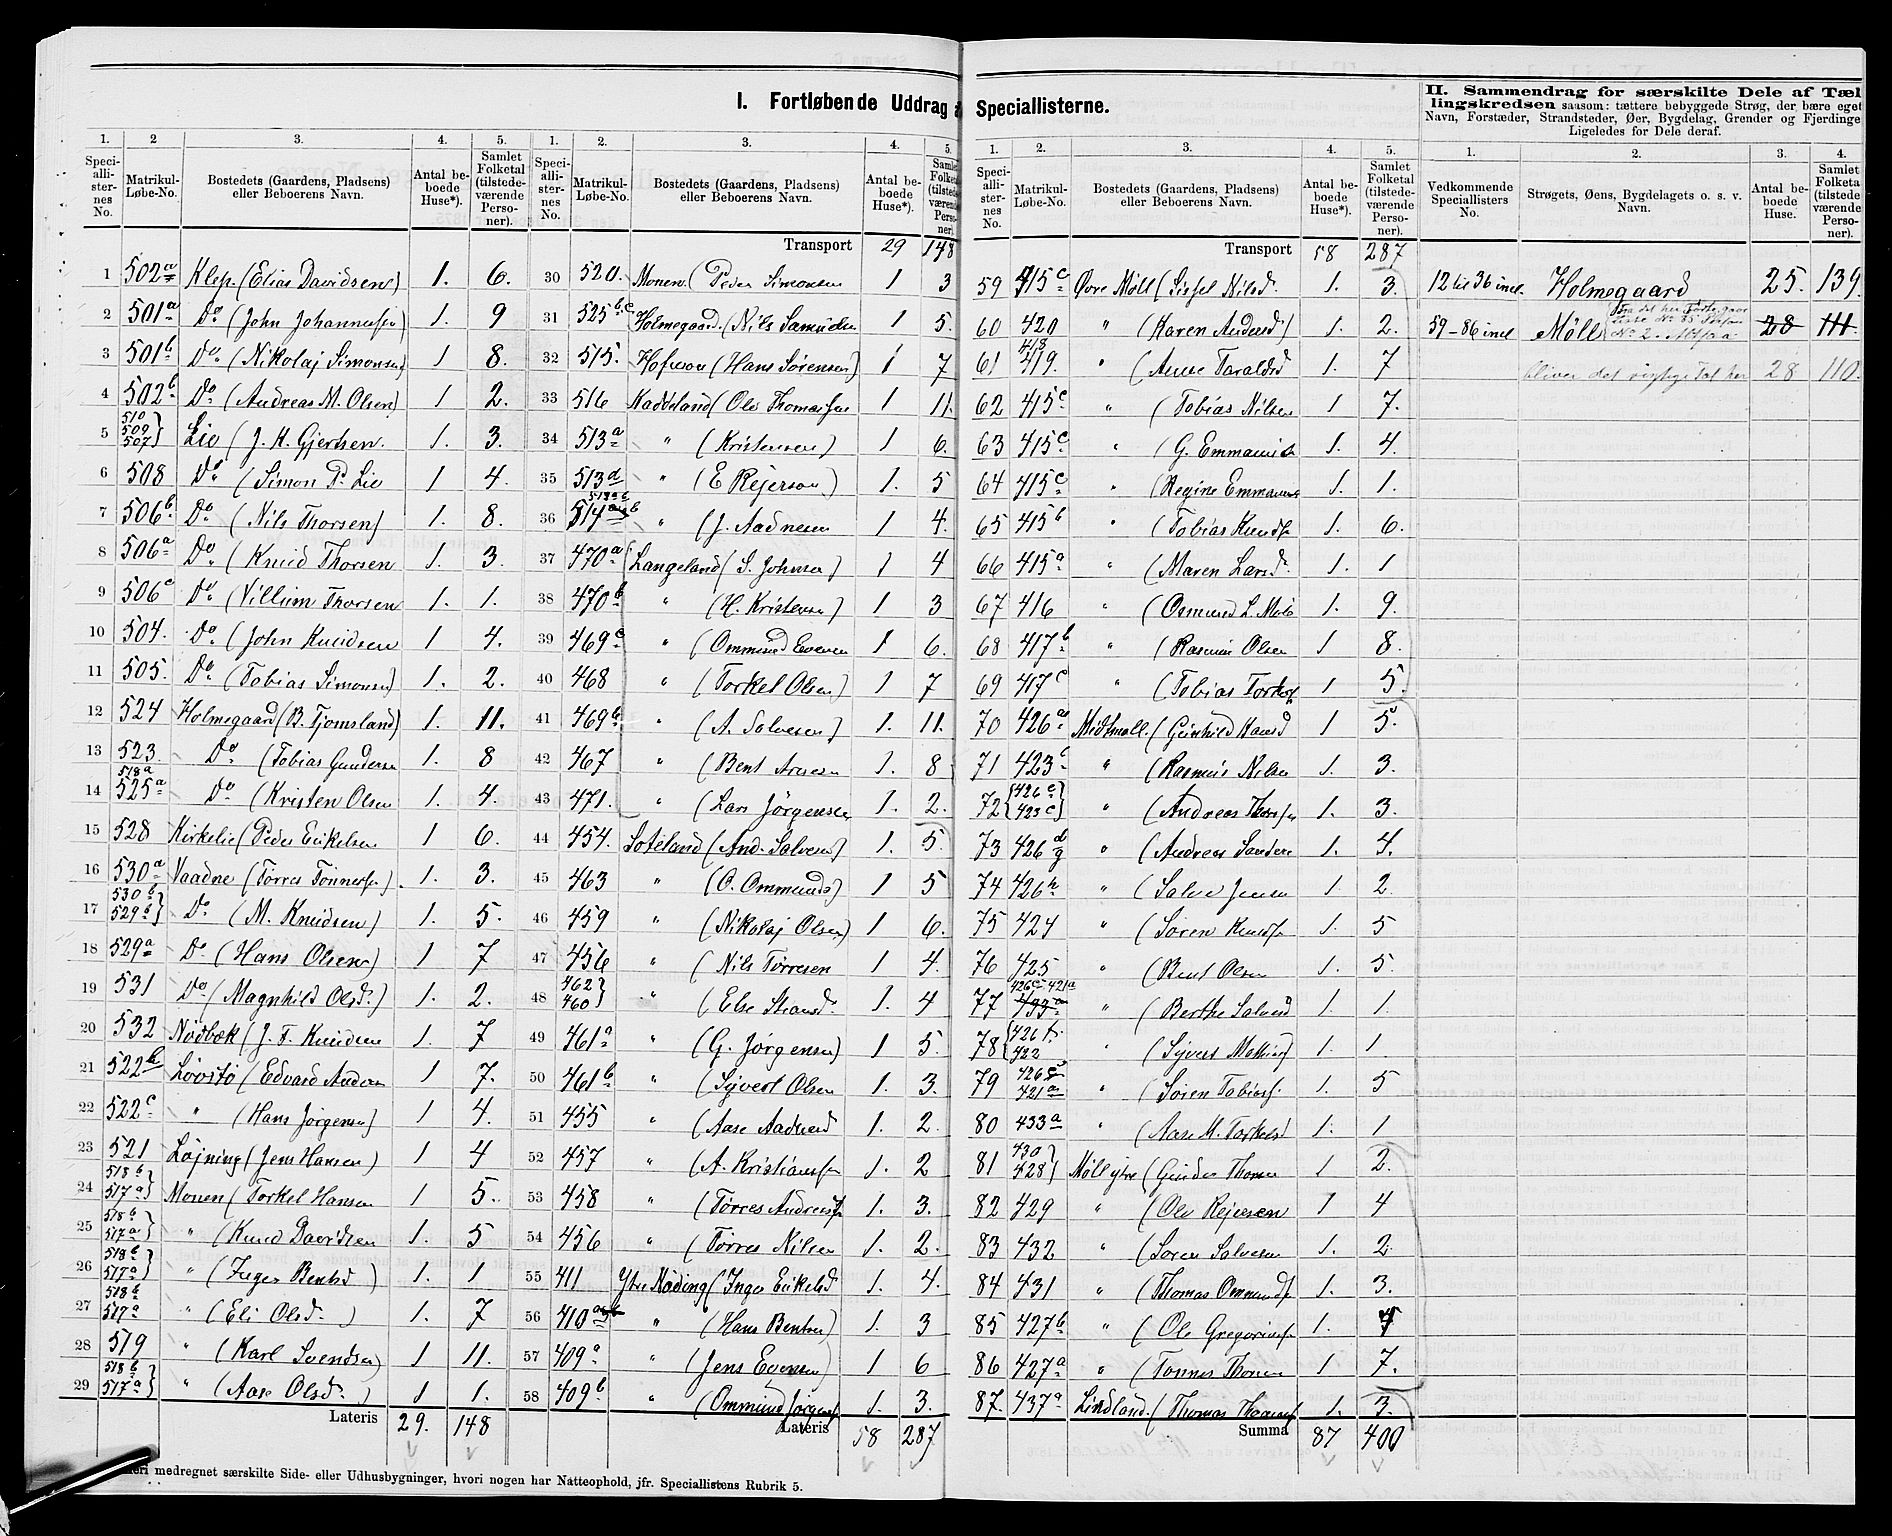 I. Fortløbende Uddrag a
1. 2 3. 4. 5. 1. 2. 3. 4. 5.
Speci-alli-ster-nes No. Matrikul-Løbe-No. Bostedets (Gaardens, Pladsens) eller Beboerens Navn. Antal be-boede Huse*). Samlet Folketal (tilstede-værende Perso-ner).
Speci-alli-ster-nes No. Matrikul-Løbe-No. Bostedets (Gaardens, Pladsens) eller Beboerens Navn. Antal be-boede Huse*). Samlet Folketa (tilstede værende Perso-ner)
1 502a Klep. (Elias Davidsen) 1. 6.
2 501a Do (John Johannessen) 1. 9
3 501b Do (Nikolaj Simonsen) 1 8.
4 502b Do (Andreas M. Olsen) 1 2.
5 510 509 507} Lie (J. K. Gjertsen. 1. 3.
6 508 Do (Simon P. Lie 1 4.
7 506b Do (Nils Thorsen) 1. 8.
8 506a Do (Knud Thorsen 1. 3.
9 506c Do (Villum Thorsen 1. 1.
10 504. Do (John Knudsen 1 4.
11 505. Do (Tobias Simonsen) 1. 2.
12 524 Holmegaard (B. Tjomsland) 1. 11.
13 523. Do (Tobias Gundersen 1. 8
14 518a 525a Do (Kristen Olsen 1. 4.
15 528 Kirkelie (Peder Eirikelsen 1 6.
16 530a Vaadne (Tørres Tønnesen) 1. 3.
17 530b 529b} Do (M. Knudsen) 1. 5.
18 529a Do (Hans Olsen) 1 7
19 531 Do (Magnhild Olsd.) 1. 2.
20 532 Nødbæk (J. T. Knudsen 1. 7
21 522b Løvstø (Edvard Andersen 1 7.
22 522c " (Hans Jørgensen) 1 4.
23 521 Løjning (Jens Hansen) 1 4
24 518b 517a} Monen (Torkel Hansen 1 5.
25 518b 517a} " (Knud Davidsen 1. 5
26 518b 517a} " (Inger Bentsd) 1. 1
27 518b 517a " (Eli Olsd.) 1. 7
28 519 " (Karl Svendsen) 1 11.
29 518b 517a} " (Aase Olsd.) 1 1.
Lateris 29. 148
Transport 29 148
30 520. Monen. (Peder Simonsen 1 3
31 525b c Holmegaard. (Nils Samuelsen 1 5.
32 515. (Hans Sørensen) 1 7
33 516 Haddeland (Ole Thomassen 1 11.
34 513a " (Kristensen) 1 6.
35 513d " (E Rejerson) 1. 5
36 513a b 514 " (J. Aadnesen 1 4.
37 470a Langeland (S. Johnsen) 1 4
38 470b " (H. Kristensen) 1 3
39 469c " (Ommund Evensen 1 6.
40 468 " (Torkel Olsen) 1 7
41 469b " (A. Salvesen) 1. 11.
42 467 " (Bent Arnesen 1. 8
43 471. " (Lars Jørgensen 1. 2.
44 454. Soteland (And. Salvesen) 1. 5.
45 463 " (O. Ommunds) 1 5
46 459 " (Nikolaj Olsen) 1 6.
47 456 " (Nils Tørresen 1 4.
48 462 460} " (Else 1. 4
49 461a " (G. Jørgensen) 1 5.
50 461b " (Syvert Olsen 1. 3.
51 455 " (Aase Aadnesd 1. 2.
52 457 " (A. Kristiansen 1. 2
53 458 " (Tørres Andreasen 1. 3.
54 456 " (Tørres Nilsen 1. 2.
55 411 Ytre Nøding (Inger Eirikelsd 1. 4.
56 410a " (Hans Bentsen) 1. 3
57 409a " (Jens Evensen) 1 6
58 409b " (Ommund Jørgensen 1. 3.
Lateris 58 287
heri medregnet særskilte Side- eller Udhusbygninger, hvori nogen har Natteophold, jfr. Speciallistens Rubrik 5.
Speciallisterne.
1. 2. 3. 4. 5.
Speci-alli-ster-nes No. Matrikul-Løbe-No. Bostedets (Gaardens, Pladsens) eller Beboerens Navn. Antal be-boede Huse*). Samlet Folketal (tilstede-værende Perso-ner).
Transport 58 287
59 415c Øvre Møll (Sissel Nilsd. 1. 3.
60 420 " (Karen Andersd) 1. 2.
61 418 419. " (Anne Taraldsd 1. 7
62 415c " (Tobias Nilsen 1 7.
63 415c " (G. Emmanuels 1 4.
64 415c " (Regine Emmanuels 1. 1.
65 415b " (Tobias Knudsen 1. 6.
66 415a " (Maren Larsd. 1. 1
67 416 " (Osmund L. Møll 1. 9.
68 417b " (Rasmus Olsen 1 8.
69 417c " (Tobias Torkels 1 5.
70 426a Midtmøll. (Gunhild Hansd 1 5.
71 423c " (Rasmus Nilsen 1. 3.
72 {426e 423c} " (Andreas Thorsen 1. 3.
73 426d g " (Andreas Sanders 1. 4.
74 426h " (Salve Jensen 1. 2.
75 424 " (Søren Knudsen 1. 5
76 425 " (Bent Olsen 1. 5.
77 426c 421a 433a " (Berthe Salvesd 1 1.
78 {426f. 422 " (Syvert Mathias 1. 1
79 426 421a " (Søren Tobiass. 1. 5
80 433a " (Aase M. Torkelsd 1. 1
81 430 428} Møll ytre (Gunder Thomsen 1 2.
82 429 " (Ole Rejersen 1 4
83 432 " (Søren Salvesen 1. 2.
84 431 " (Thomas Ommunds 1. 3.
85 427b " (Ole Gregoriuss 1. 4
86 427a " (Tønnes Thomsen 1 7.
87. 437a Lindland. (Thomas Thomass 1. 3.
Summa 87 400
II. Sammendrag for særskilte Dele af Tæl
lingskredsen saasom: tættere bebyggede Strøg, der bære eget
Navn, Forstæder, Strandsteder, Øer, Bygdelag, Grender og Fjerdinge
Ligeledes for Dele deraf.
1. 2. 3. 4.
Vedkommende Speciallisters No. Strøgets, Øens, Bygdelagets o. s. v. Navn. Antal be-boede Huse. Samlet Folketa (tilstede værende Perso-ner).
12 til 36 incl. Holmegaard 25. 139.
59-86 incl Møll 28 111.
bliver det rigtige Tal her 28 110.